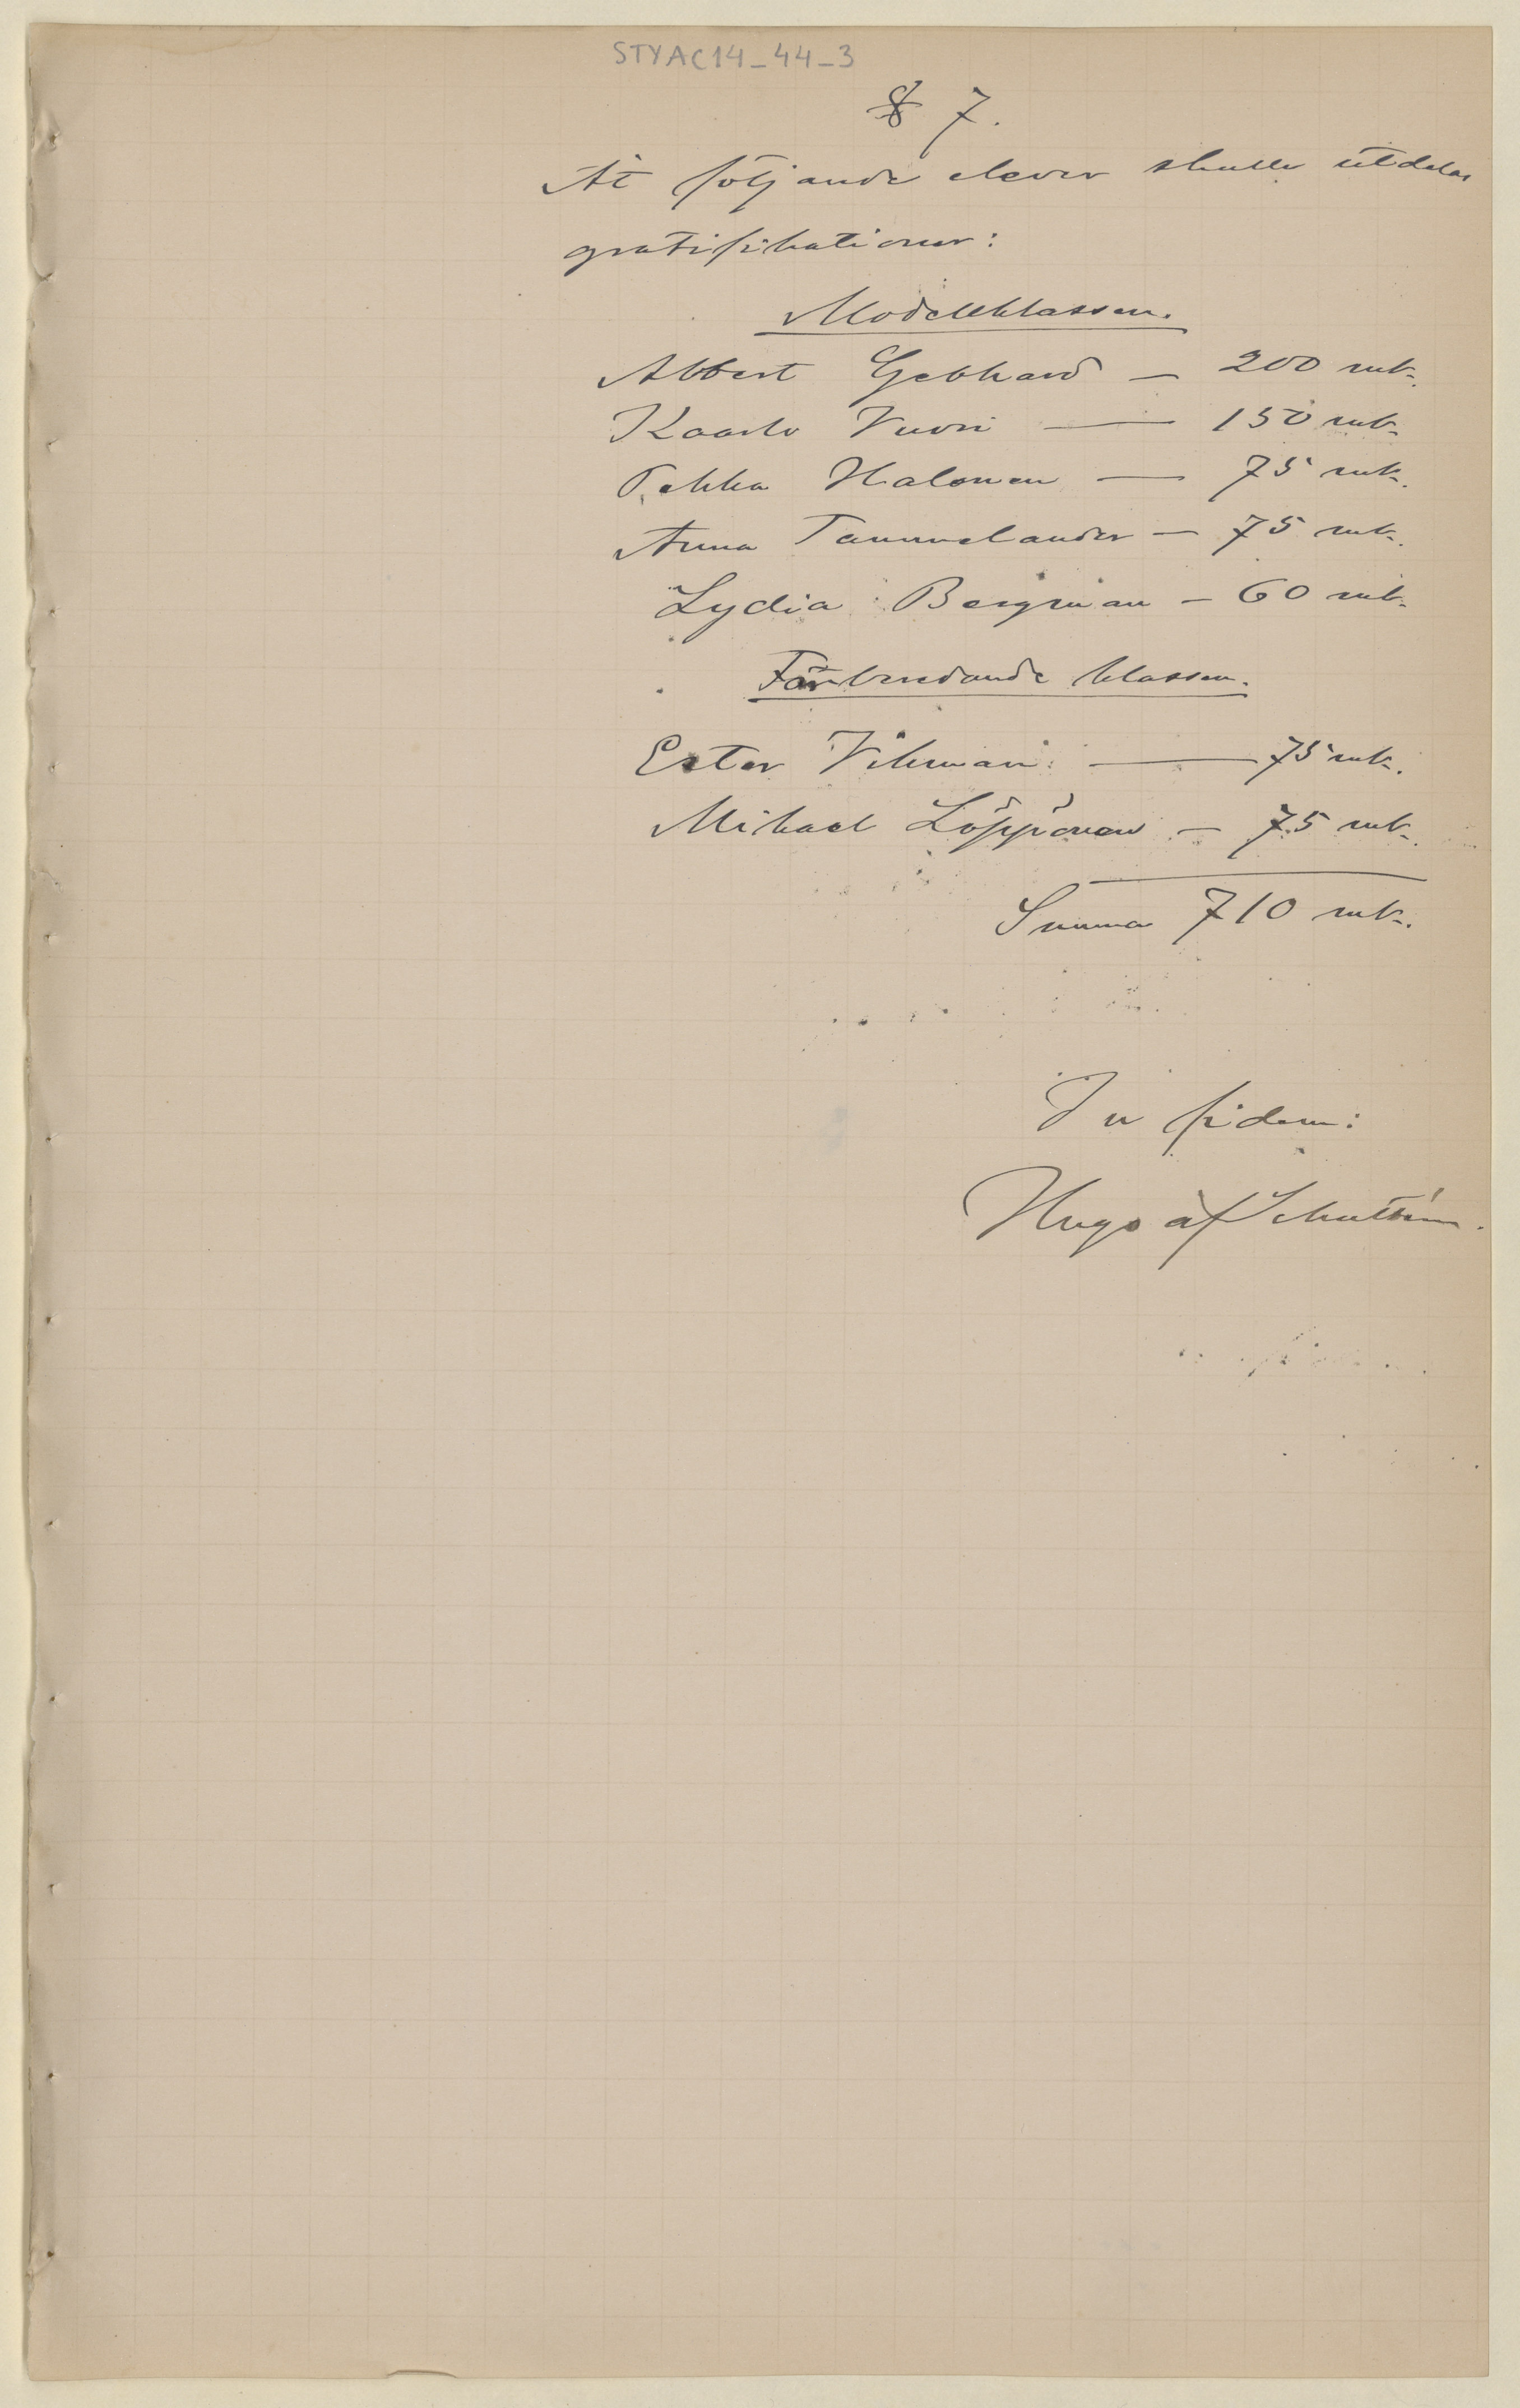 STYAC14_44_3
§ 7.
Åt följande elever skulle utdelas
gratifikationer:
Modellklassen.
Albert Gebhard — 200 mk.
Kaarlo Vuori — 150 mk.
Pekka Halonen — 75 mk.
Anna Tammelander — 75 mk.
Lydia Bergman — 60 mk.
Förberedande klassen.
Ester Vihman — 75 mk.
Mikael Löppönen — 75 mk.
Summa 710 mk.
In fidem:
Hugo af Schultén.